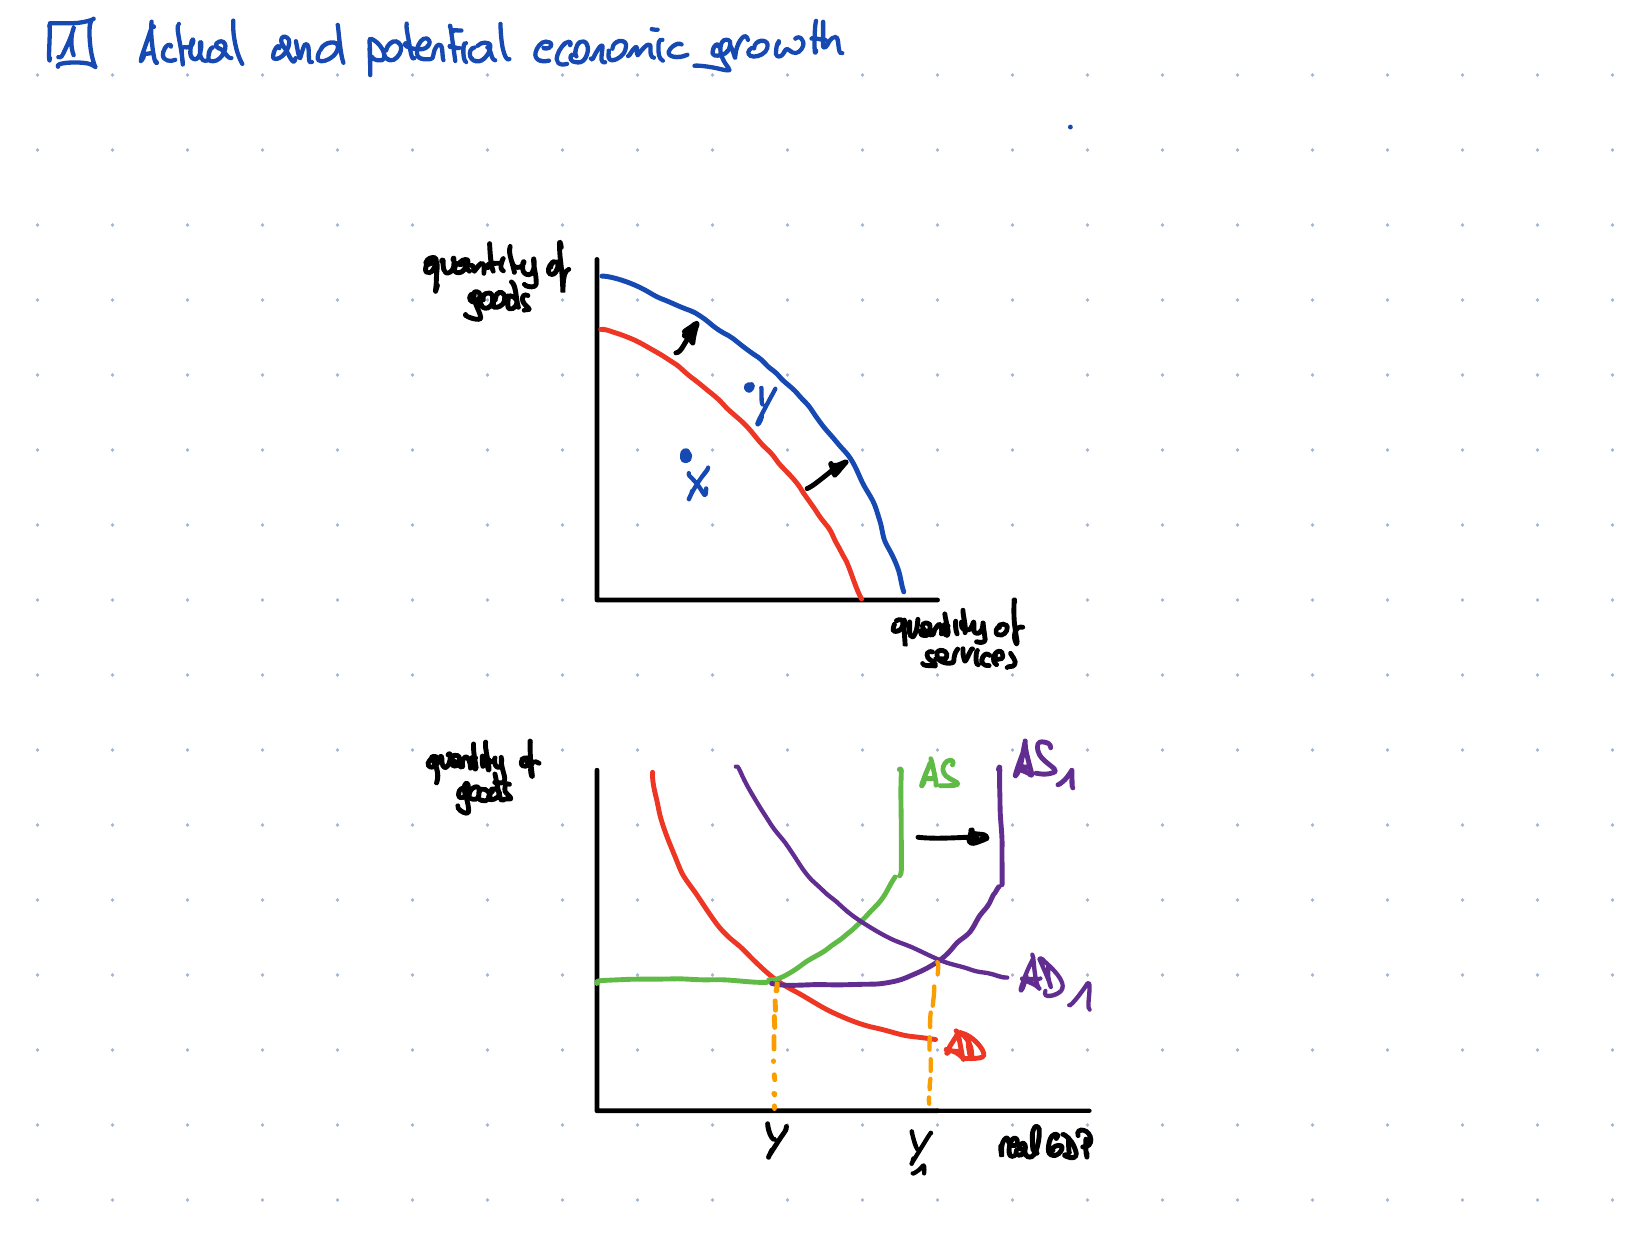 1 Actual and potential economic growth
quantity of
goods
y
x
quantity of
services
quantity of
goods
AS
AS1
AD1
AD
y
y1
real GDP